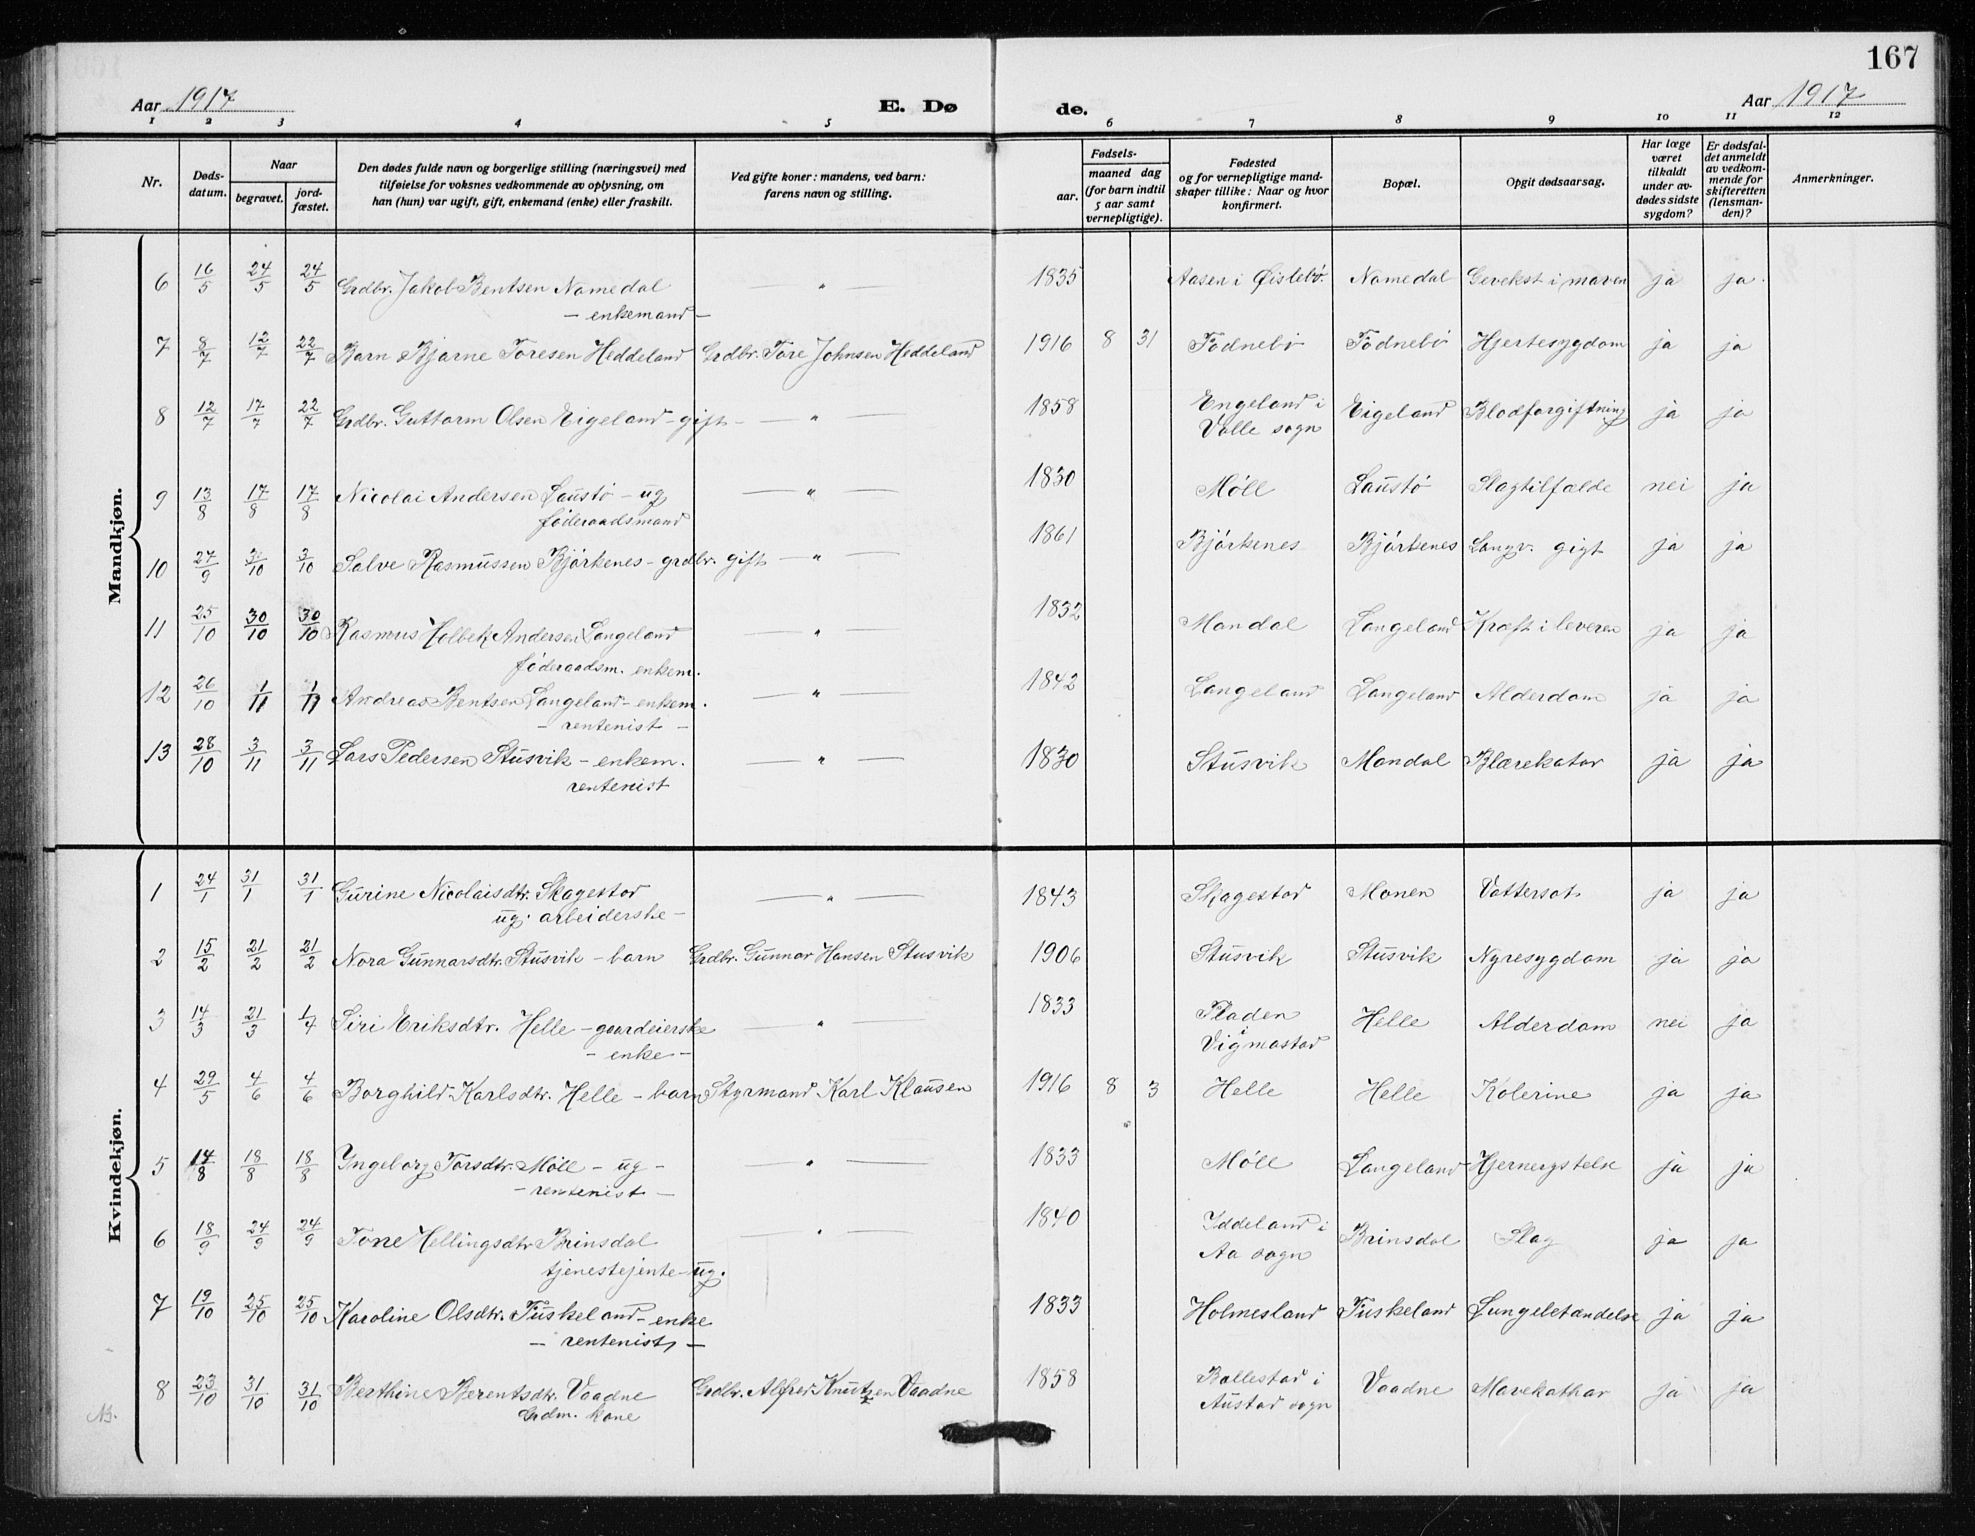 167
Aar 1917 E. Dø de. Aar 1917
1 2 3 4 5 6 7 8 9 10 11 12
Nr.
Døds-
datum.
Naar
begravet.
jord-
fæstet.
Den dødes fulde navn og borgerlige stilling (næringsvei) med
tilføielse for voksnes vedkommende av oplysning, om
han (hun) var ugift, gift, enkemand (enke) eller fraskilt.
Ved gifte koner: mandens, ved barn:
farens navn og stilling.
Fødsels-
aar.
maaned dag
(for barn indtil
5 aar samt
vernepligtige).
Fødested
og for vernepligtige mand-
skaper tillike: Naar og hvor
konfirmert.
Bopæl.
Opgit dødsaarsag.
Har læge
været
tilkaldt
under av-
dødes sidste
sygdom?
Er dødsfal-
det anmeldt
av vedkom-
mende for
skifteretten
(lensman-
den)?
Anmerkninger.
Mandkjøn.
6 16/5 24/5 24/5 Grdbr. Jakob Bentsen Nomedal — " — 1835 Aasen i Øislebø. Nomedal Gevekst i maven ja ja.
- enkemand -
7 8/7 12/7 22/7 Barn Bjarne Toresen Heddeland Grdbr. Tore Johnsen Heddeland 1916 8 31 Fodnebø Fodnebø Hjertesygdom ja ja
8 12/7 17/7 22/7 Grdbr. Guttorm Olsen Eigeland - gift - — " — 1858 Engeland i Eigeland Blodforgiftning ja ja
Valle sogn
9 13/8 17/8 17/8 Nicolai Andersen Laustø - ug — " — 1830 Møll Laustø Slagtilfælde nei ja
føderaadsmand
10 27/9 3/10 3/10 Salve Rasmussen Bjørkenes - grdbr. gift - " — 1861 Bjørkenes Bjørkenes Langv. gigt ja ja
11 25/10 30/10 30/10 Rasmus Holbek Andersen Langeland — " 1832 Mandal Langeland Kræft i leveren ja ja
føderaadsm. enkem.
12 26/10 1/11 1/11 Andreas Bentsen Langeland - enkem. — " — 1842 Langeland Langeland Alderdom ja ja
- rentenist -
13 28/10 3/11 3/11 Lars Pedersen Stusvik - enkem. — " — 1830 Stusvik Mandal Blærekatar ja ja
rentenist
Kvindekjøn.
1 24/1 31/1 31/1 Gurine Nicolaisdtr. Skagestad — " — 1843 Skagestad Monen Vattersot ja ja
ug. arbeiderske -
2 15/2 21/2 21/2 Nora Gunnarsdtr. Stusvik - barn Grdbr. Gunnar Hansen Stusvik 1906 Stusvik Stusvik Nyresygdom ja ja
3 14/3 21/3 1/4 Siri Eriksdtr. Helle - gaardeierske — " — 1833 Fladen i Helle Alderdom nei ja
- enke - Vigmostad
4 29/5 4/6 4/6 Borghild Karlsdtr. Helle - barn Styrmand Karl Klausen 1916 8 3 Helle Helle Kolerine ja ja
5 14/8 18/8 18/8 Yngeborg Torsdtr. Møll - ug - — " — 1833 Møll Langeland Hjernerystelse ja ja
- rentenist -
6 18/9 24/9 24/9 Tone Hellingsdtr Brinsdal — " — 1840 Iddeland i Brinsdal Slag ja ja
tjenestejente - ug. Aa sogn
7 19/10 25/10 25/10 Karoline Olsdtr. Tuskeland - enke 1833 Holmesland Tuskeland Lungebetændelse ja ja
- rentenist -
8 23/10 31/10 31/10 Berthine Berentsdtr. Vaadne Grdbr. Alfred Knutzen Vaadne 1858 Ballestad i Vaadne Mavekathar ja ja
Nb. Grdm. kone Austad sogn